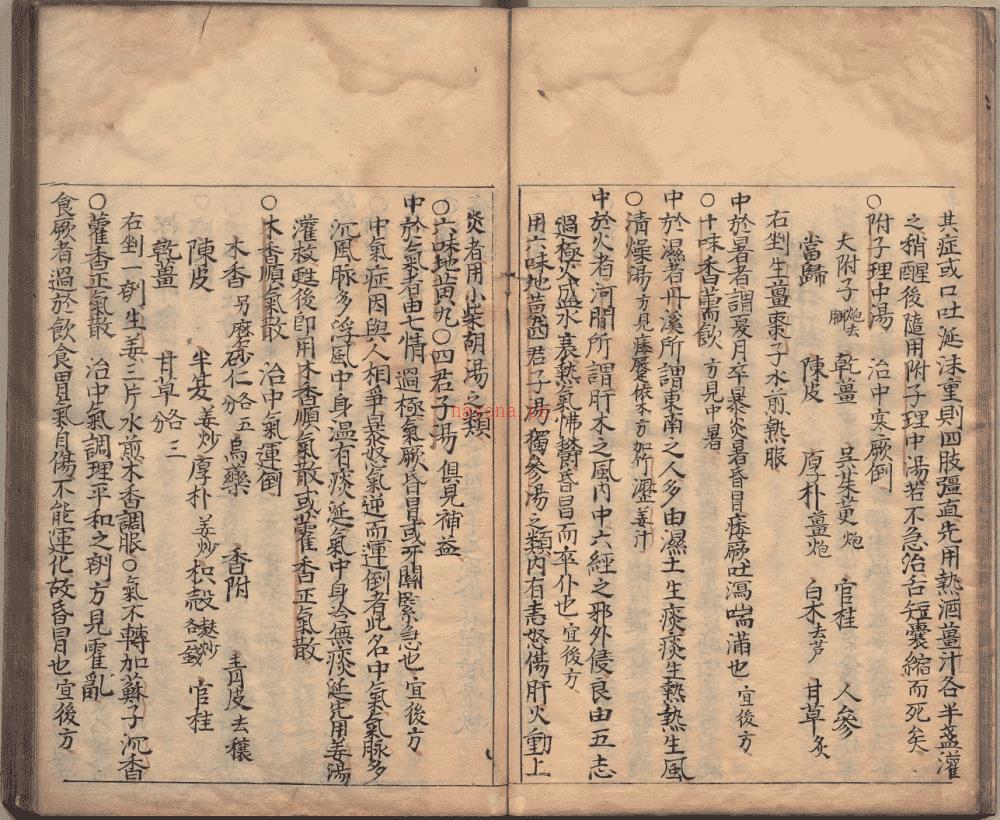 其症或口吐涎沫重則四肢彊直先用熱酒薑汁各半盞灌
之稍醒後隨用附子理中湯若不急治舌短囊縮而死矣
○附子理中湯 治中寒厥倒
大附子炮去臍 乾薑 吳茱萸炮 官桂 人參
當歸 陳皮 厚朴薑炮 白术去芦 甘草炙
右剉生薑棗子水煎熱服
中於暑者謂夏月卒暴炎暑昏冒痿厥吐瀉喘滿也宜後方
○十味香薷飲 方見中暑
中於濕者丹溪所謂東南之人多由濕土生痰痰生熱熱生風
○清燥湯方見痿躄依本方加竹瀝姜汁
中於火者河間所謂肝木之風內中六經之邪外侵良由五志
過極火盛水衰熱氣怫鬱昏冒而卒仆也宜後方
用六味地黃四君子湯獨參湯之類內有恚怒傷肝火動上
炎者用小柴胡湯之類
○六味地黃丸○四君子湯俱見補益
中於氣者由七情過極氣厥昏冒或牙關緊急也宜後方
中氣症因與人相爭暴怒氣逆而運倒者此名中氣氣脉多
沉風脉多浮風中身溫有痰涎氣中身冷無痰涎先用姜湯
灌救甦後即用木香順氣散或藿香正氣散
○木香順氣散 治中氣運倒
木香另磨 砂仁各五分 烏藥 香附 青皮去穰
陳皮 半夏姜炒 厚朴姜炒 枳殼麩炒各一錢 官桂
乾薑 甘草各三分
右剉一劑生姜三片水煎木香調服○氣不轉加蘇子沉香
○藿香正氣散 治中氣調理平和之劑方見霍亂
食厥者過於飲食胃氣自傷不能運化故昏冒也宜後方